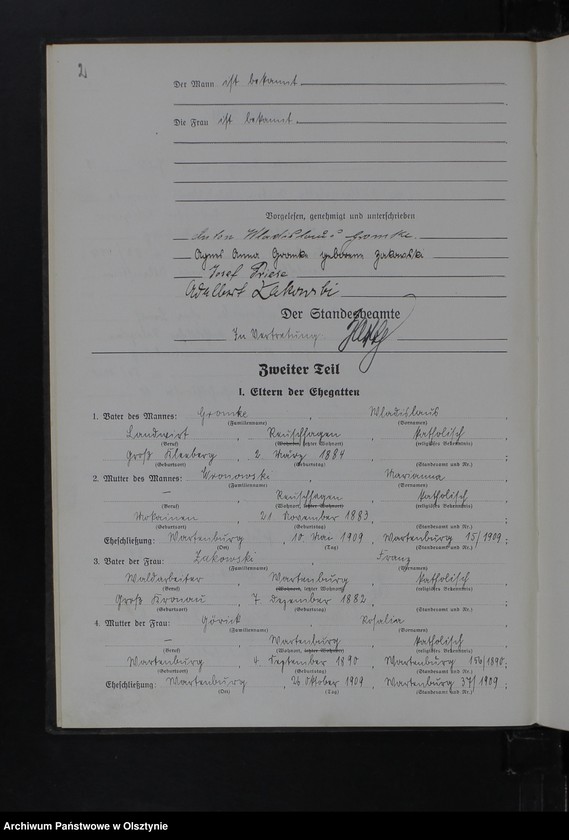 2
Der Mann ist bekannt
Die Frau ist bekannt.
Vorgelesen, genehmigt und unterschrieben
Anton Wladislaus Gromke.
Agnes Anna Gromke geborene Zakowski
Josef Priese
Adalbert Zakowski
Der Standesbeamte
In Vertretung
Zweiter Teil
1. Eltern der Ehegatten
1. Vater des Mannes: Gromke, Wladislaus,
(Familienname) (Vornamen)
Landwirt, Reuschhagen, katholisch
(Beruf) (Wohnort, letzter Wohnort) (religiöses Bekenntnis)
Groß Kleeberg, 2. März 1884
(Geburtsort) (Geburtstag) (Standesamt und Nr.)
2. Mutter des Mannes: Wronowski, Marianna,
(Familienname) (Vornamen)
—, Reuschhagen, katholisch
(Beruf) (Wohnort, letzter Wohnort) (religiöses Bekenntnis)
Mokainen, 21 November 1883,
(Geburtsort) (Geburtstag) (Standesamt und Nr.)
Eheschließung: Wartenburg, 10. Mai 1909, Wartenburg 15/1909;
(Ort) (Tag) (Standesamt und Nr.)
3. Vater der Frau: Zakowski, Franz,
(Familienname) (Vornamen)
Waldarbeiter, Wartenburg, katholisch
(Beruf) (Wohnort, letzter Wohnort) (religiöses Bekenntnis)
Groß Kronau, 7 Dezember 1882,
(Geburtsort) (Geburtstag) (Standesamt und Nr.)
4. Mutter der Frau: Rosalia,
(Familienname) (Vornamen)
—, Wartenburg, katholisch
(Beruf) (Wohnort, letzter Wohnort) (religiöses Bekenntnis)
Wartenburg, 4. September 1890, Wartenburg 156/1890;
(Geburtsort) (Geburtstag) (Standesamt und Nr.)
Eheschließung: Wartenburg, 26 Oktober 1909, Wartenburg 37/1909;
(Ort) (Tag) (Standesamt und Nr.)
Archiwum Państwowe w Olsztynie